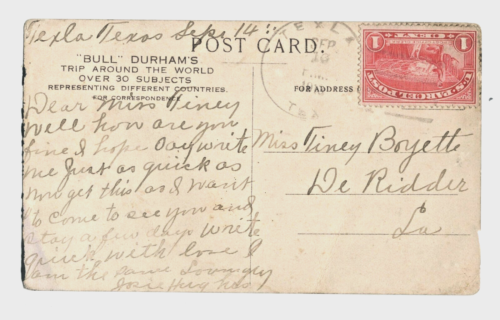 Texla Texas Sept 14
POST CARD.
"BULL" DURHAM'S
TRIP AROUND THE WORLD
OVER 30 SUBJECTS
REPRESENTING DIFFERENT COUNTRIES.
FOR CORRESPONDENCE
FOR ADDRESS
TEXLA
SEP
TEX
1 CENT 1
U.S. PARCEL POST
Dear Miss Tiney
Well how are you
fine I hope Say write
me Just as quick as
you get this as I want
to come to see you and
stay a few days write
quick with love I
am the same
Josie Hughes
Miss Tiney Boyette
De Ridder
La